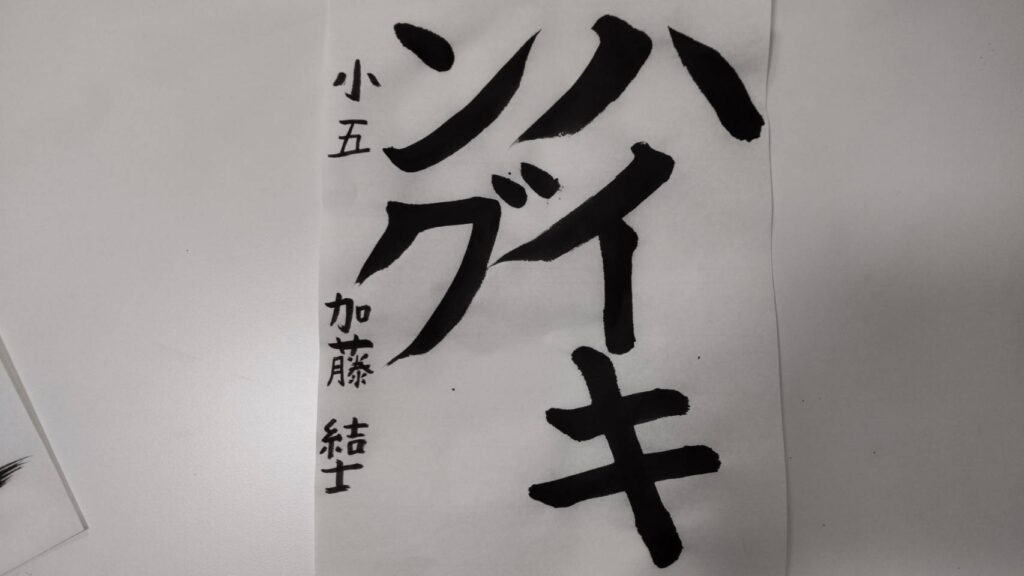 ハイキ
ング
小五
加藤結士